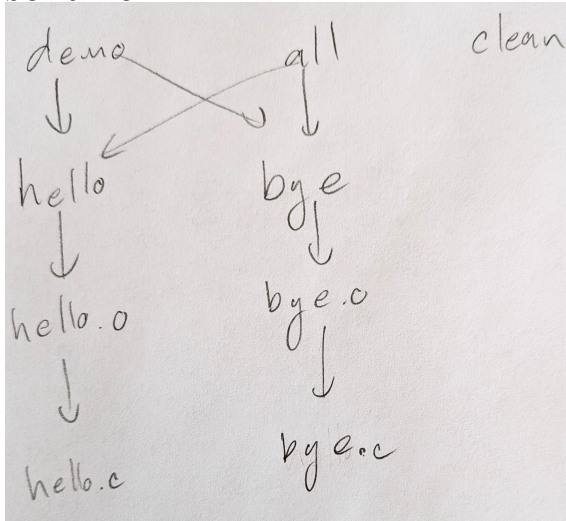 demo all clean
hello bye
hello.o bye.o
hello.c bye.c